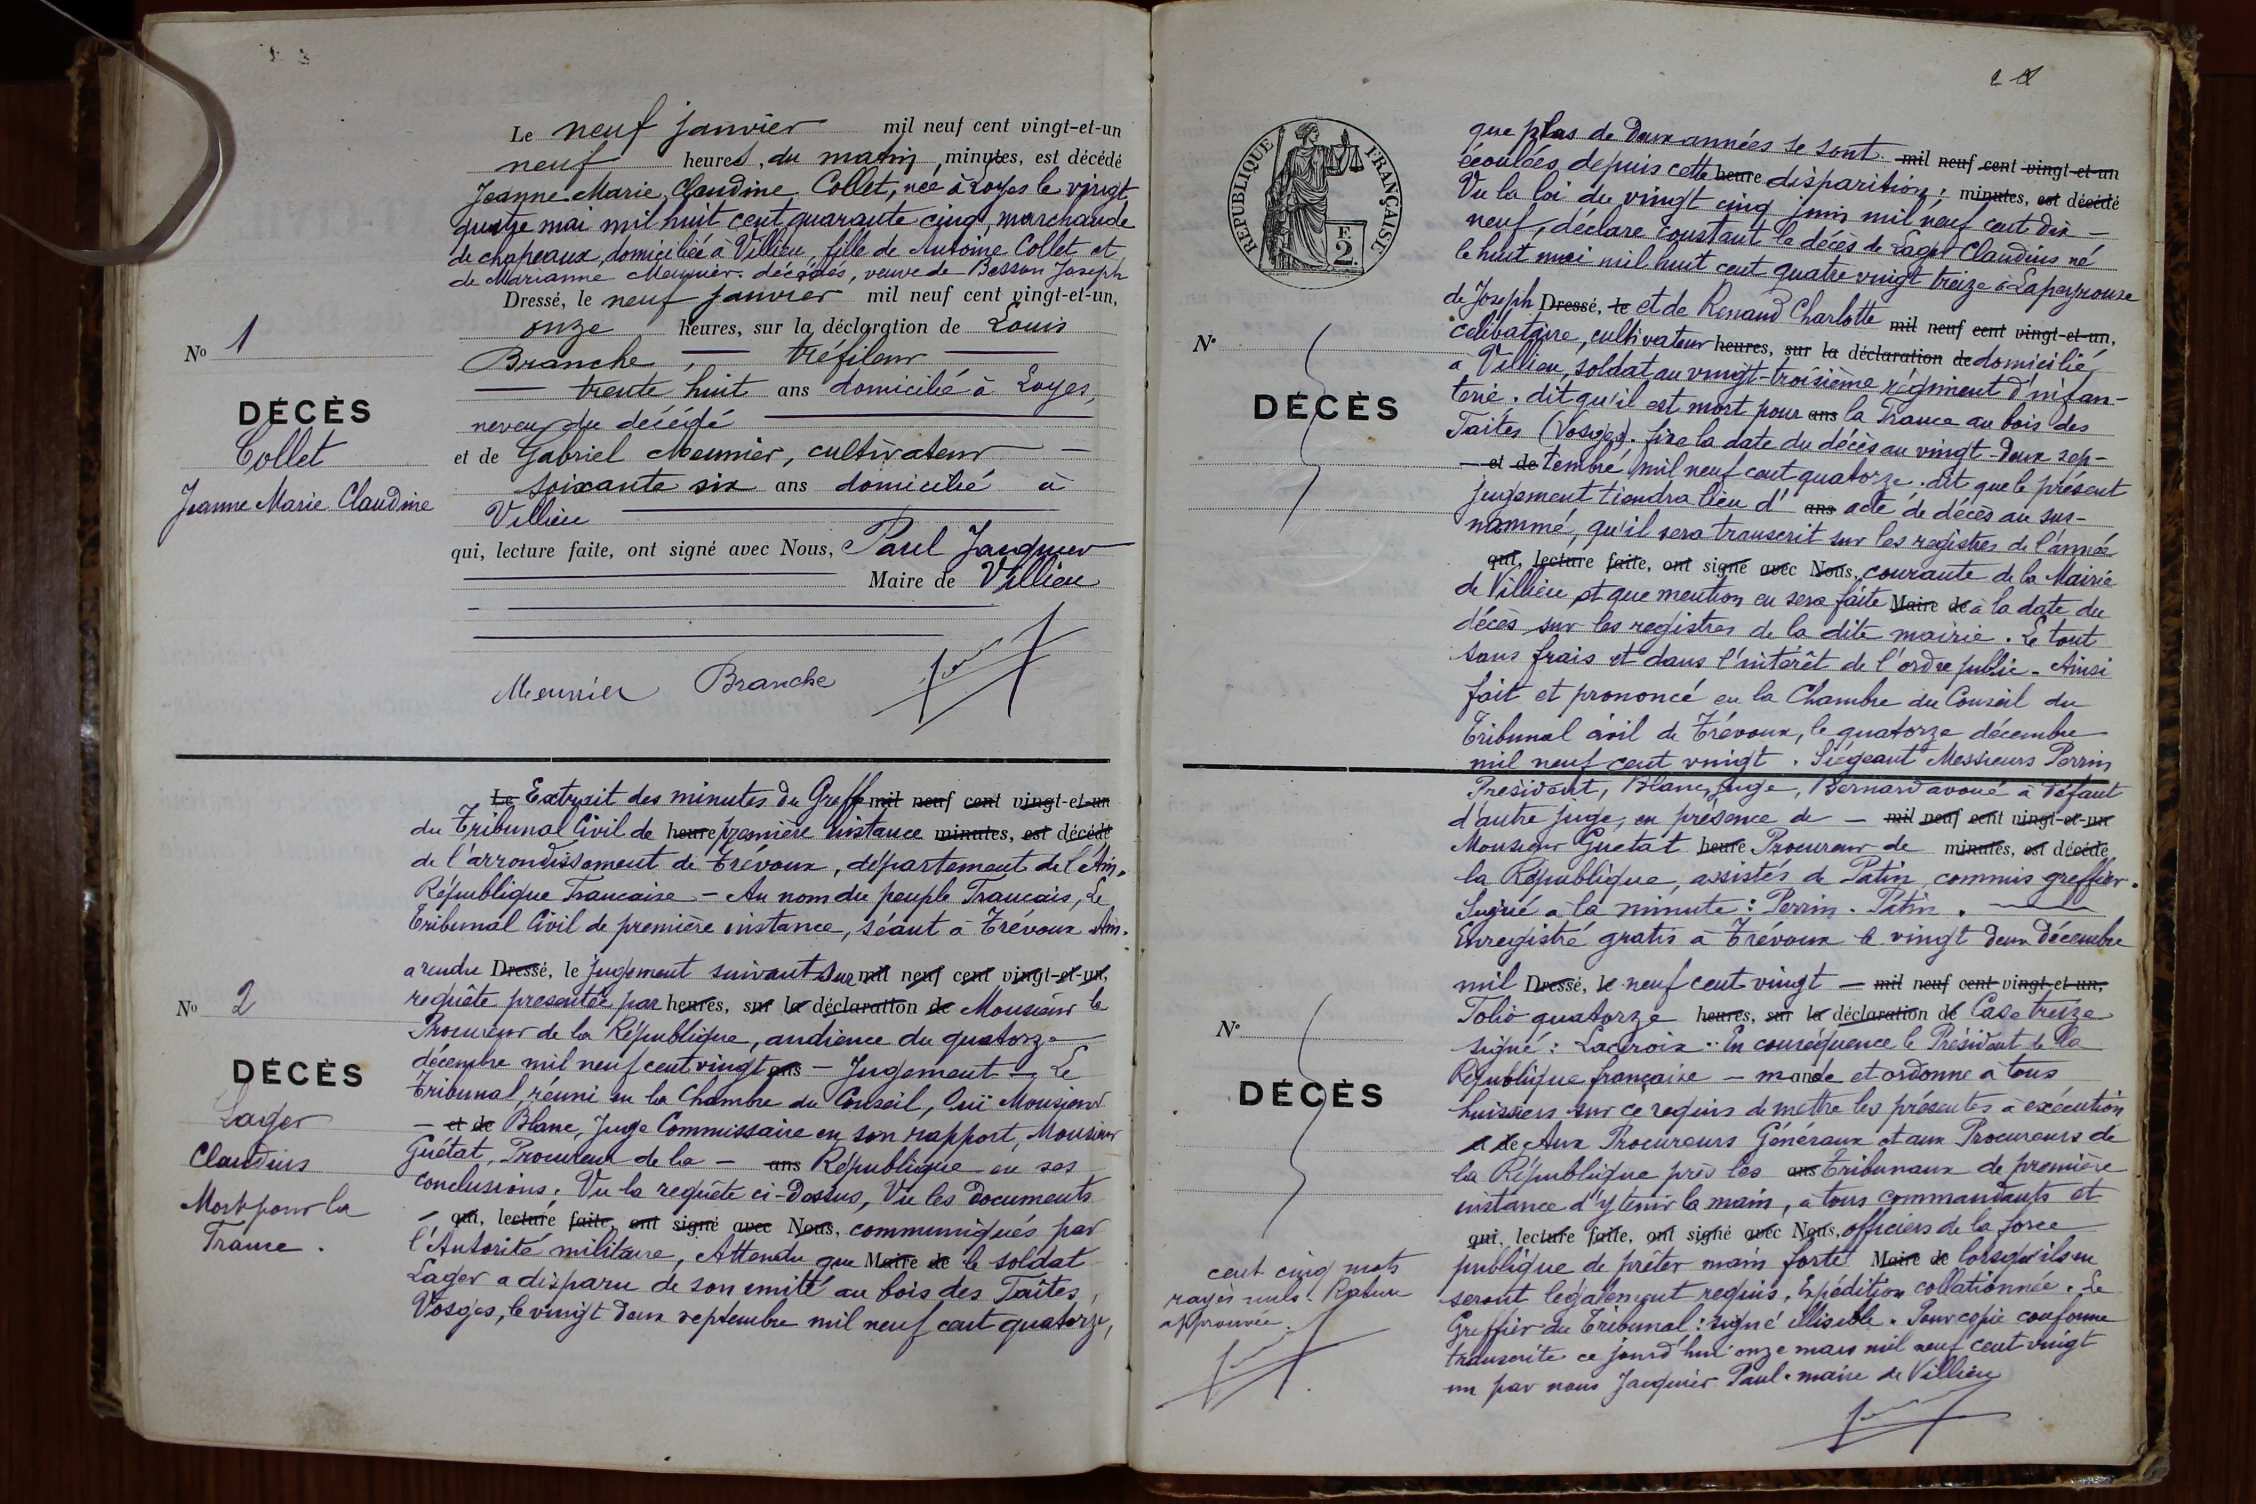 Le neuf janvier mil neuf cent vingt-et-un
neuf heures du matin, minutes, est décédé
Jeanne Marie Claudine Collet, née à Loyes le vingt
quatre mai mil huit cent quarante cinq, marchande
de chapeaux, domiciliée à Villieu, fille de Antoine Collet et
de Marianne Meunier décédés, veuve de Besson Joseph
Dressé, le neuf janvier mil neuf cent vingt-et-un,
onze heures, sur la déclaration de Louis
Branche, tréfileur
trente huit ans domicilié à Loyes,
neveu du décédé
et de Gabriel Meunier, cultivateur
soixante six ans domicilié à
Villieu
qui, lecture faite, ont signé avec Nous, Paul Jacquier
Maire de Villieu
Meunier Branche
No 1
DÉCÈS
Collet
Jeanne Marie Claudine
Le Extrait des minutes du Greffe mil neuf cent vingt-et-un
du Tribunal Civil de heure première instance minutes, est décédé
de l'arrondissement de Trévoux, département de l'Ain.
République Francaise - Au nom du peuple Francais, Le
Tribunal Civil de première instance, séant à Trévoux Ain.
a rendu Dressé, le jugement suivant sur mil neuf cent vingt-et-un,
requête presentée par heures, sur la déclaration de Monsieur le
Procureur de la République, audience du quatorze
décembre mil neuf cent vingt ans - Jugement - Le
Tribunal, réuni en la Chambre du Conseil, Ouï Monsieur
- et de Blanc, Juge Commissaire en son rapport, Monsieur
Guétat, Procureur de la - ans République en ses
conclusions. Vu la requête ci-dessus, Vu les documents
- qui, lecture faite, ont signé avec Nous, communiqués par
l'Autorité militaire, Attendu que Maire de le soldat
Lager a disparu de son unité au bois des Taîtes,
Vosges, le vingt deux septembre mil neuf cent quatorze,
No 2
DÉCÈS
Lager
Claudius
Mort pour la
France.
2
RÉPUBLIQUE FRANÇAISE
F.
2.
que plus de deux années se sont mil neuf cent vingt-et-un
écoulées depuis cette heure disparition; minutes, est décédé
Vu la loi du vingt cinq juin mil neuf cent dix-
neuf, déclare constant le décès de Lager Claudius né
le huit mai mil huit cent quatre vingt treize à Lapeyrouse
de Joseph Dressé, le et de Renaud Charlotte mil neuf cent vingt-et-un,
célibataire, cultivateur heures, sur la déclaration de domicilié
à Villieu, soldat au vingt-troisième régiment d'infan-
terie. dit qu'il est mort pour ans la France au bois des
Taîtes (Vosges). fixe la date du décès au vingt-deux sep-
- et de tembre mil neuf cent quatorze. dit que le présent
jugement tiendra lieu d' ans acte de décès au sus-
nommé, qu'il sera transcrit sur les registres de l'année
qui, lecture faite, ont signé avec Nous, courante de la Mairie
de Villieu et que mention en sera faite Maire de à la date du
décès sur les registres de la dite mairie. Le tout
sans frais et dans l'intérêt de l'ordre public. Ainsi
fait et prononcé en la Chambre du Conseil du
Tribunal civil de Trévoux, le quatorze décembre
mil neuf cent vingt. Siégeant Messieurs Perrin
Président, Blanc, juge, Bernard avoué à défaut
d'autre juge, en présence de - mil neuf cent vingt-et-un
Monsieur Guetat heure Procureur de minutes, est décédé
la République, assistés de Patin, commis greffier.
Signé à la minute: Perrin. Patin.
Enregistré gratis à Trévoux le vingt deux Décembre
mil Dressé, le neuf cent vingt - mil neuf cent vingt-et-un,
Folio quatorze heures, sur la déclaration de Case treize
signé: Lacroix. En conséquence le Président de la
République française - mande et ordonne à tous
huissiers sur ce requis de mettre les présentes à exécution
et de Aux Procureurs Généraux et aux Procureurs de
la République près les ans Tribunaux de première
instance d'y tenir la main, à tous commandants et
qui, lecture faite, ont signé avec Nous, officiers de la force
publique de prêter main forte Maire de lorsqu'ils en
seront légalement requis. Expédition collationnée. Le
Greffier du Tribunal: signé illisible. Pour copie conforme
transcrite ce jourd'hui onze mars mil neuf cent vingt
un par nous Jacquier Paul. maire de Villieu
No
DÉCÈS
No
DÉCÈS
cent cinq mots
rayés nuls. Rature
approuvée.